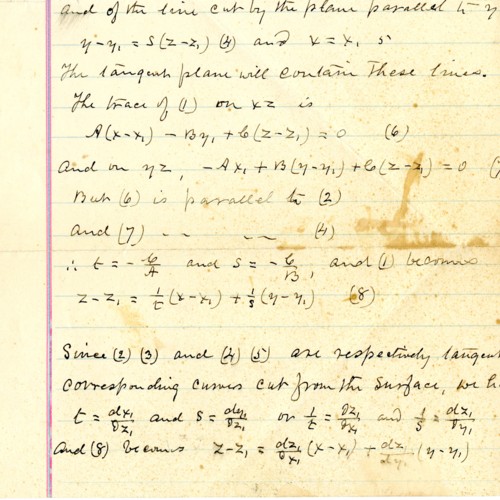 and of the line cut by the plane parallel to y
y-y₁ = s(z-z₁) (4) and x = x₁ 5
The tangent plane will contain these lines.
The trace of (1) on xz is
A(x-x₁) - By₁ + C(z-z₁) = 0 (6)
and on yz, -Ax₁ + B(y-y₁) + C(z-z₁) = 0 (7
But (6) is parallel to (2)
and (7) -- -- (4)
∴ t = -C/A and s = -C/B, and (1) becomes
z-z₁ = 1/t (x-x₁) + 1/s (y-y₁) (8)
Since (2) (3) and (4) (5) are respectively tangent
corresponding curves cut from the surface, we ha
t = dx₁/dz₁ and s = dy₁/dz₁ or 1/t = dz₁/dx₁ and 1/s = dz₁/dy₁
and (8) becomes z-z₁ = dz₁/dx₁ (x-x₁) + dz₁/dy₁ (y-y₁)